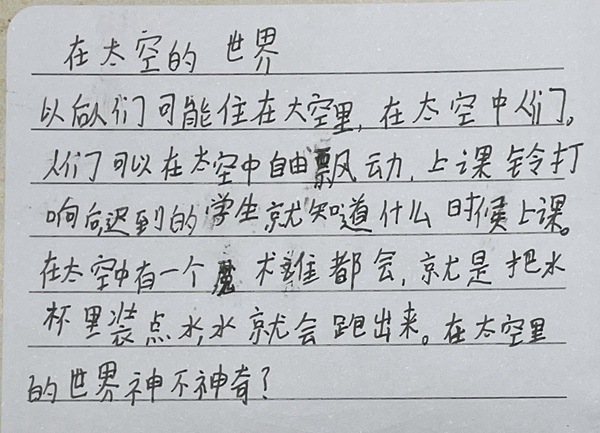 在太空的世界
以后人们可能住在太空里,在太空中人们。
人们可以在太空中自由飘动,上课铃打
响后,迟到的学生就知道什么时候上课。
在太空中有一个魔术谁都会,就是把水
杯里装点水,水就会跑出来。在太空里
的世界神不神奇?